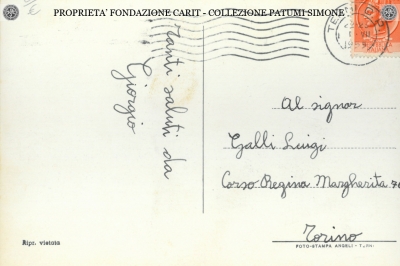 PROPRIETA' FONDAZIONE CARIT - COLLEZIONE PATUMI SIMONE
Tanti saluti da
Giorgio
Al signor
Galli Luigi
Corso Regina Margherita
Torino
Ripr. vietata
FOTO-STAMPA ANGELI -